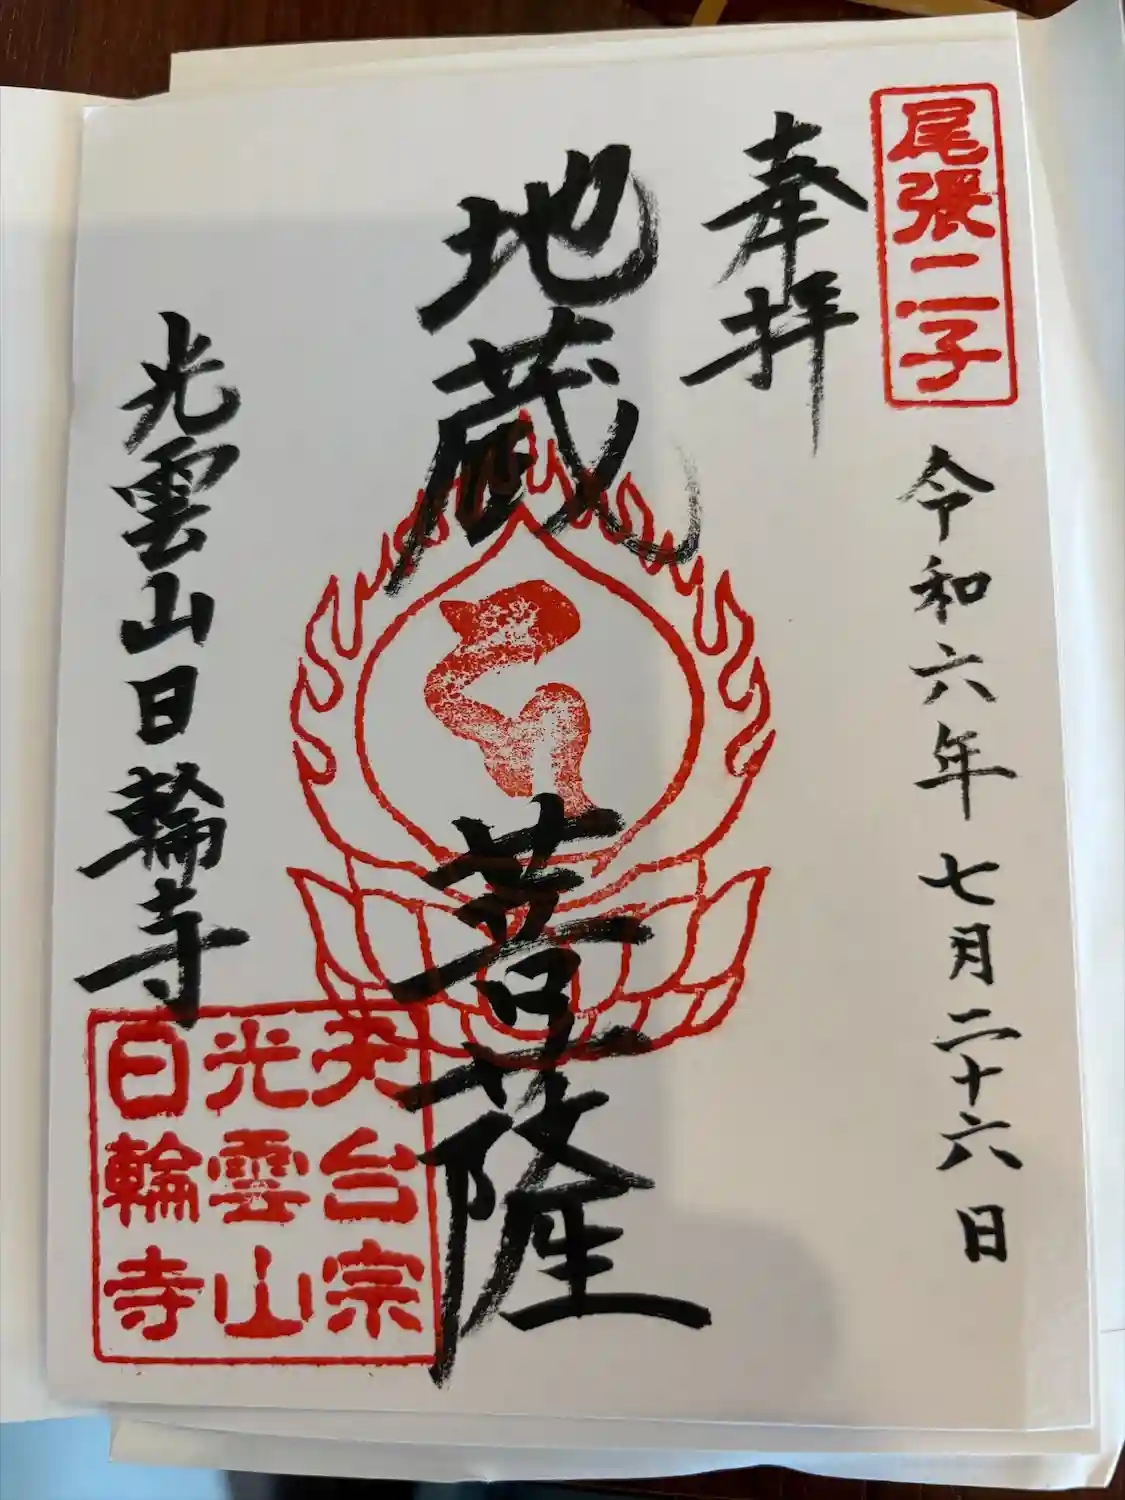 尾張二子
令和六年七月二十六日
奉拝
地蔵菩薩
光雲山日輪寺
天台宗
光雲山
日輪寺